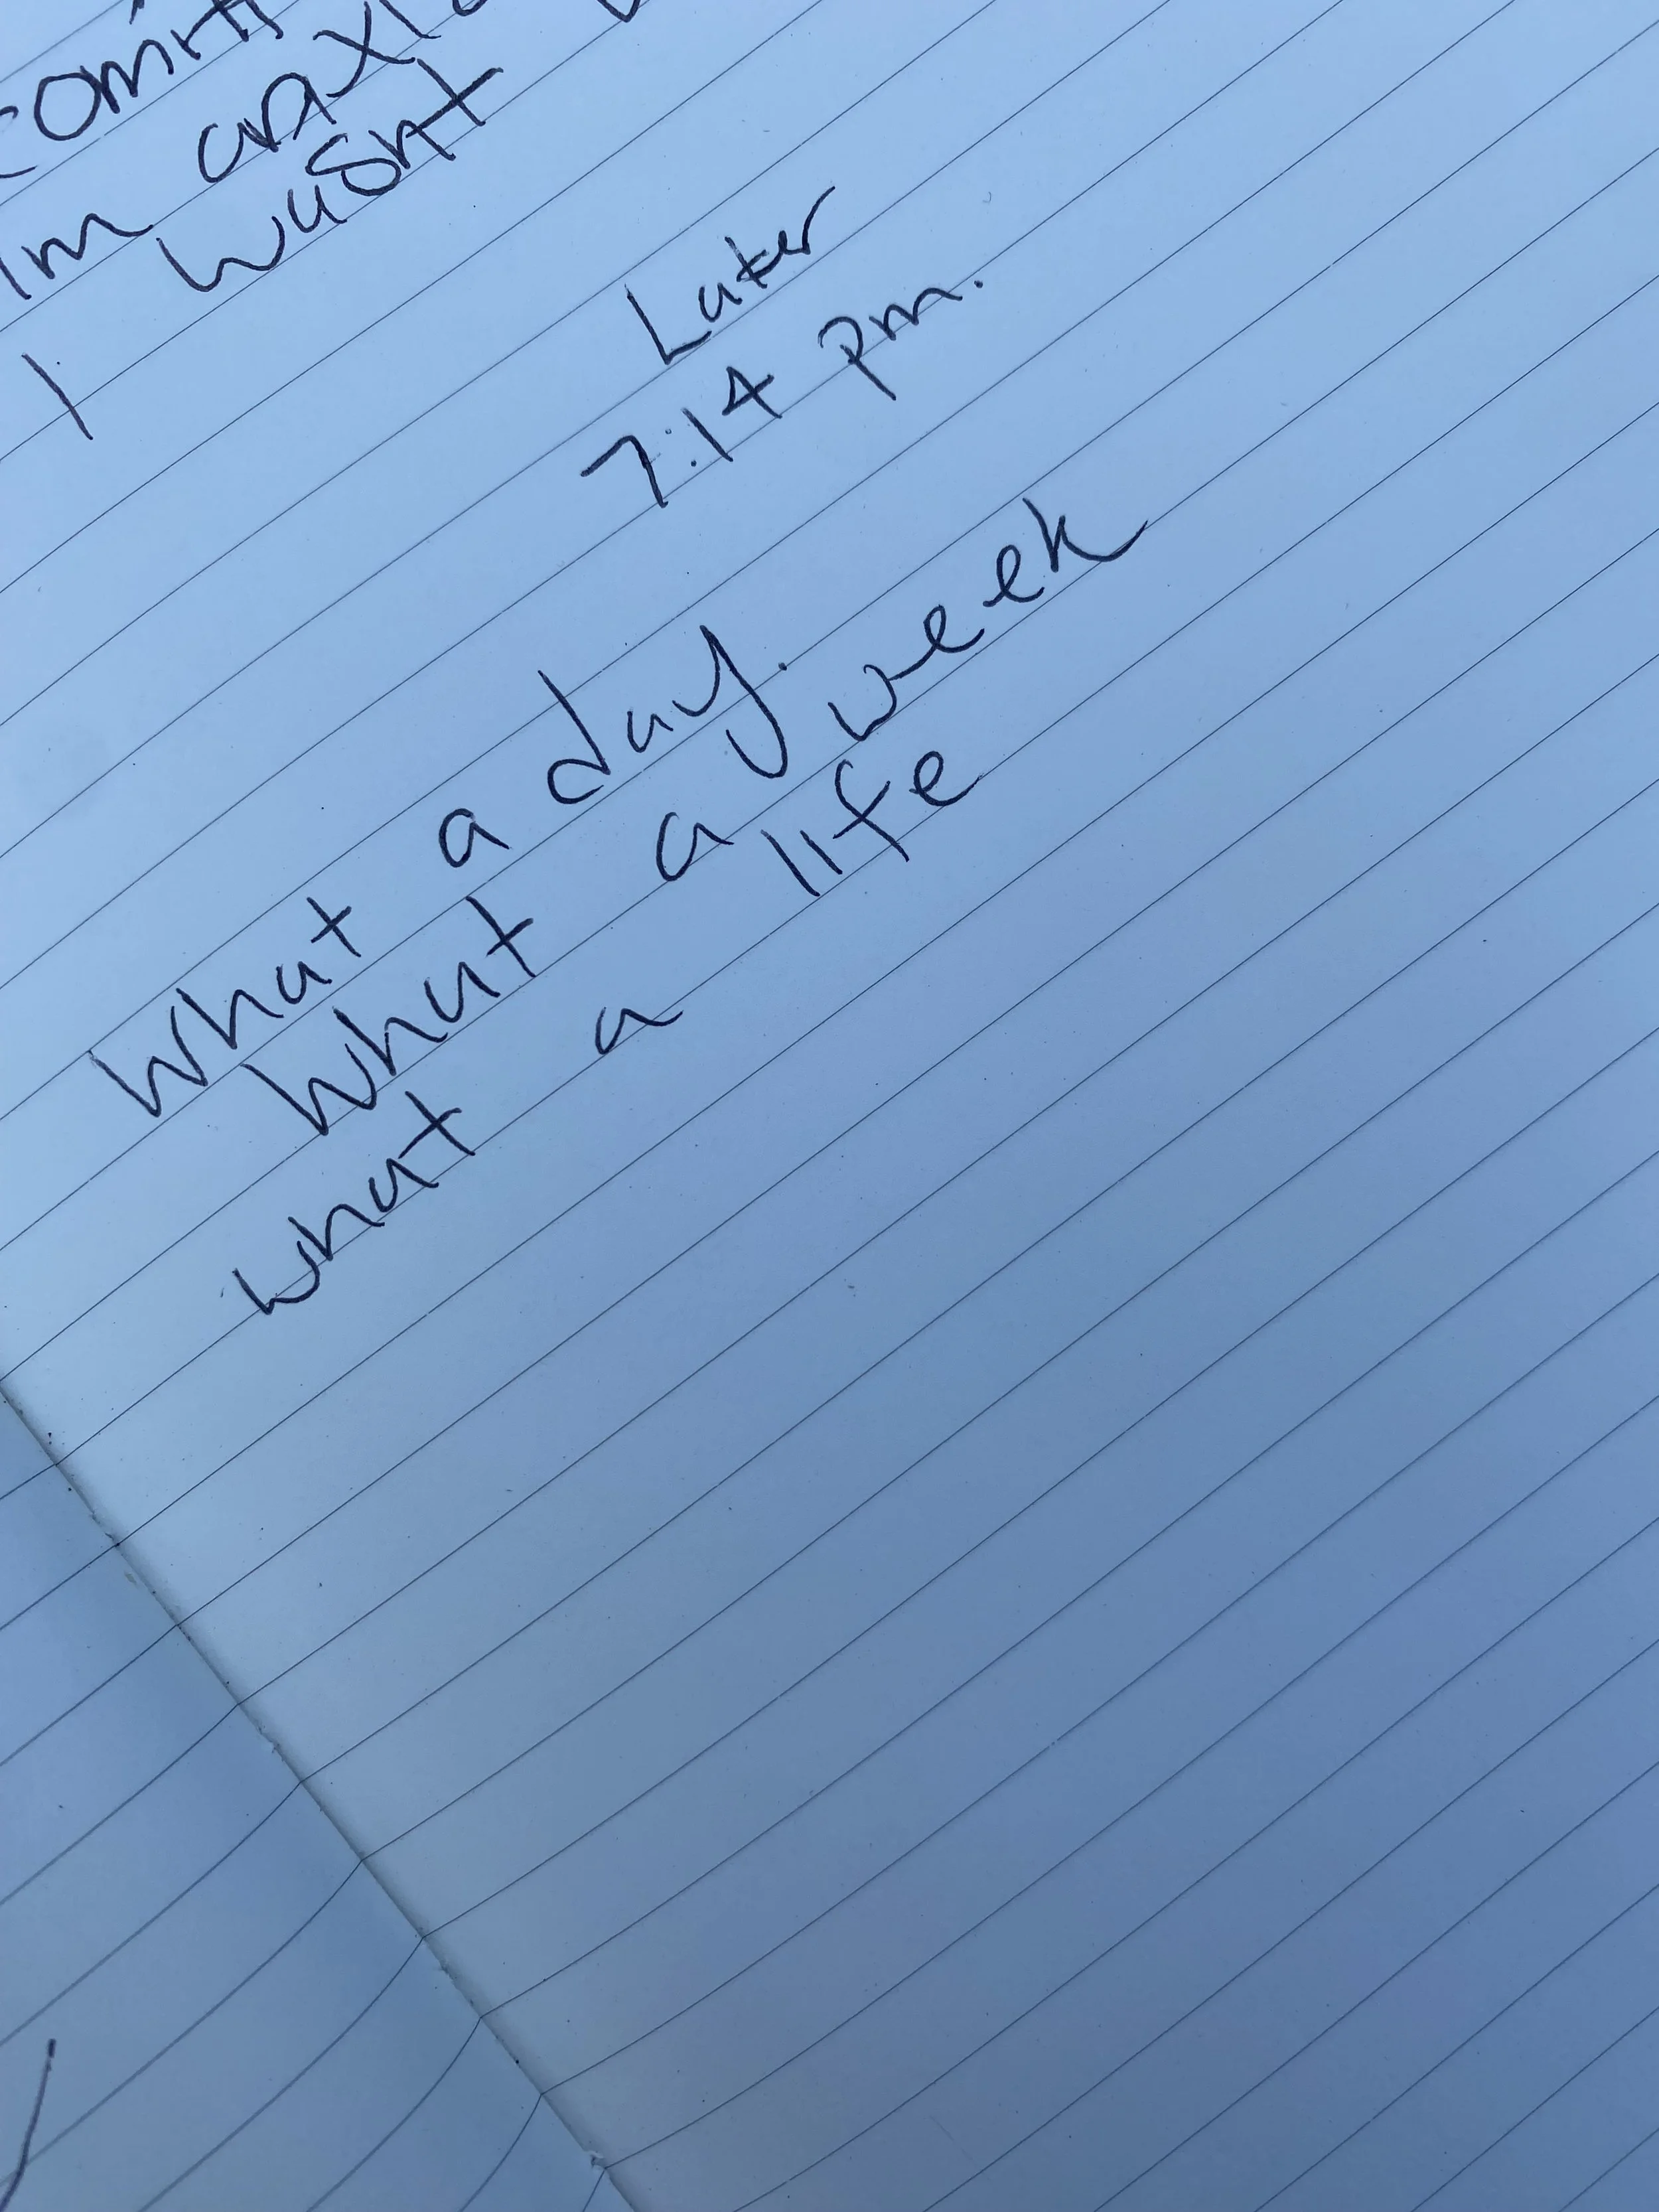 Im
I wasnt
Later
7:14 pm.
What a day.
What a week
what a life